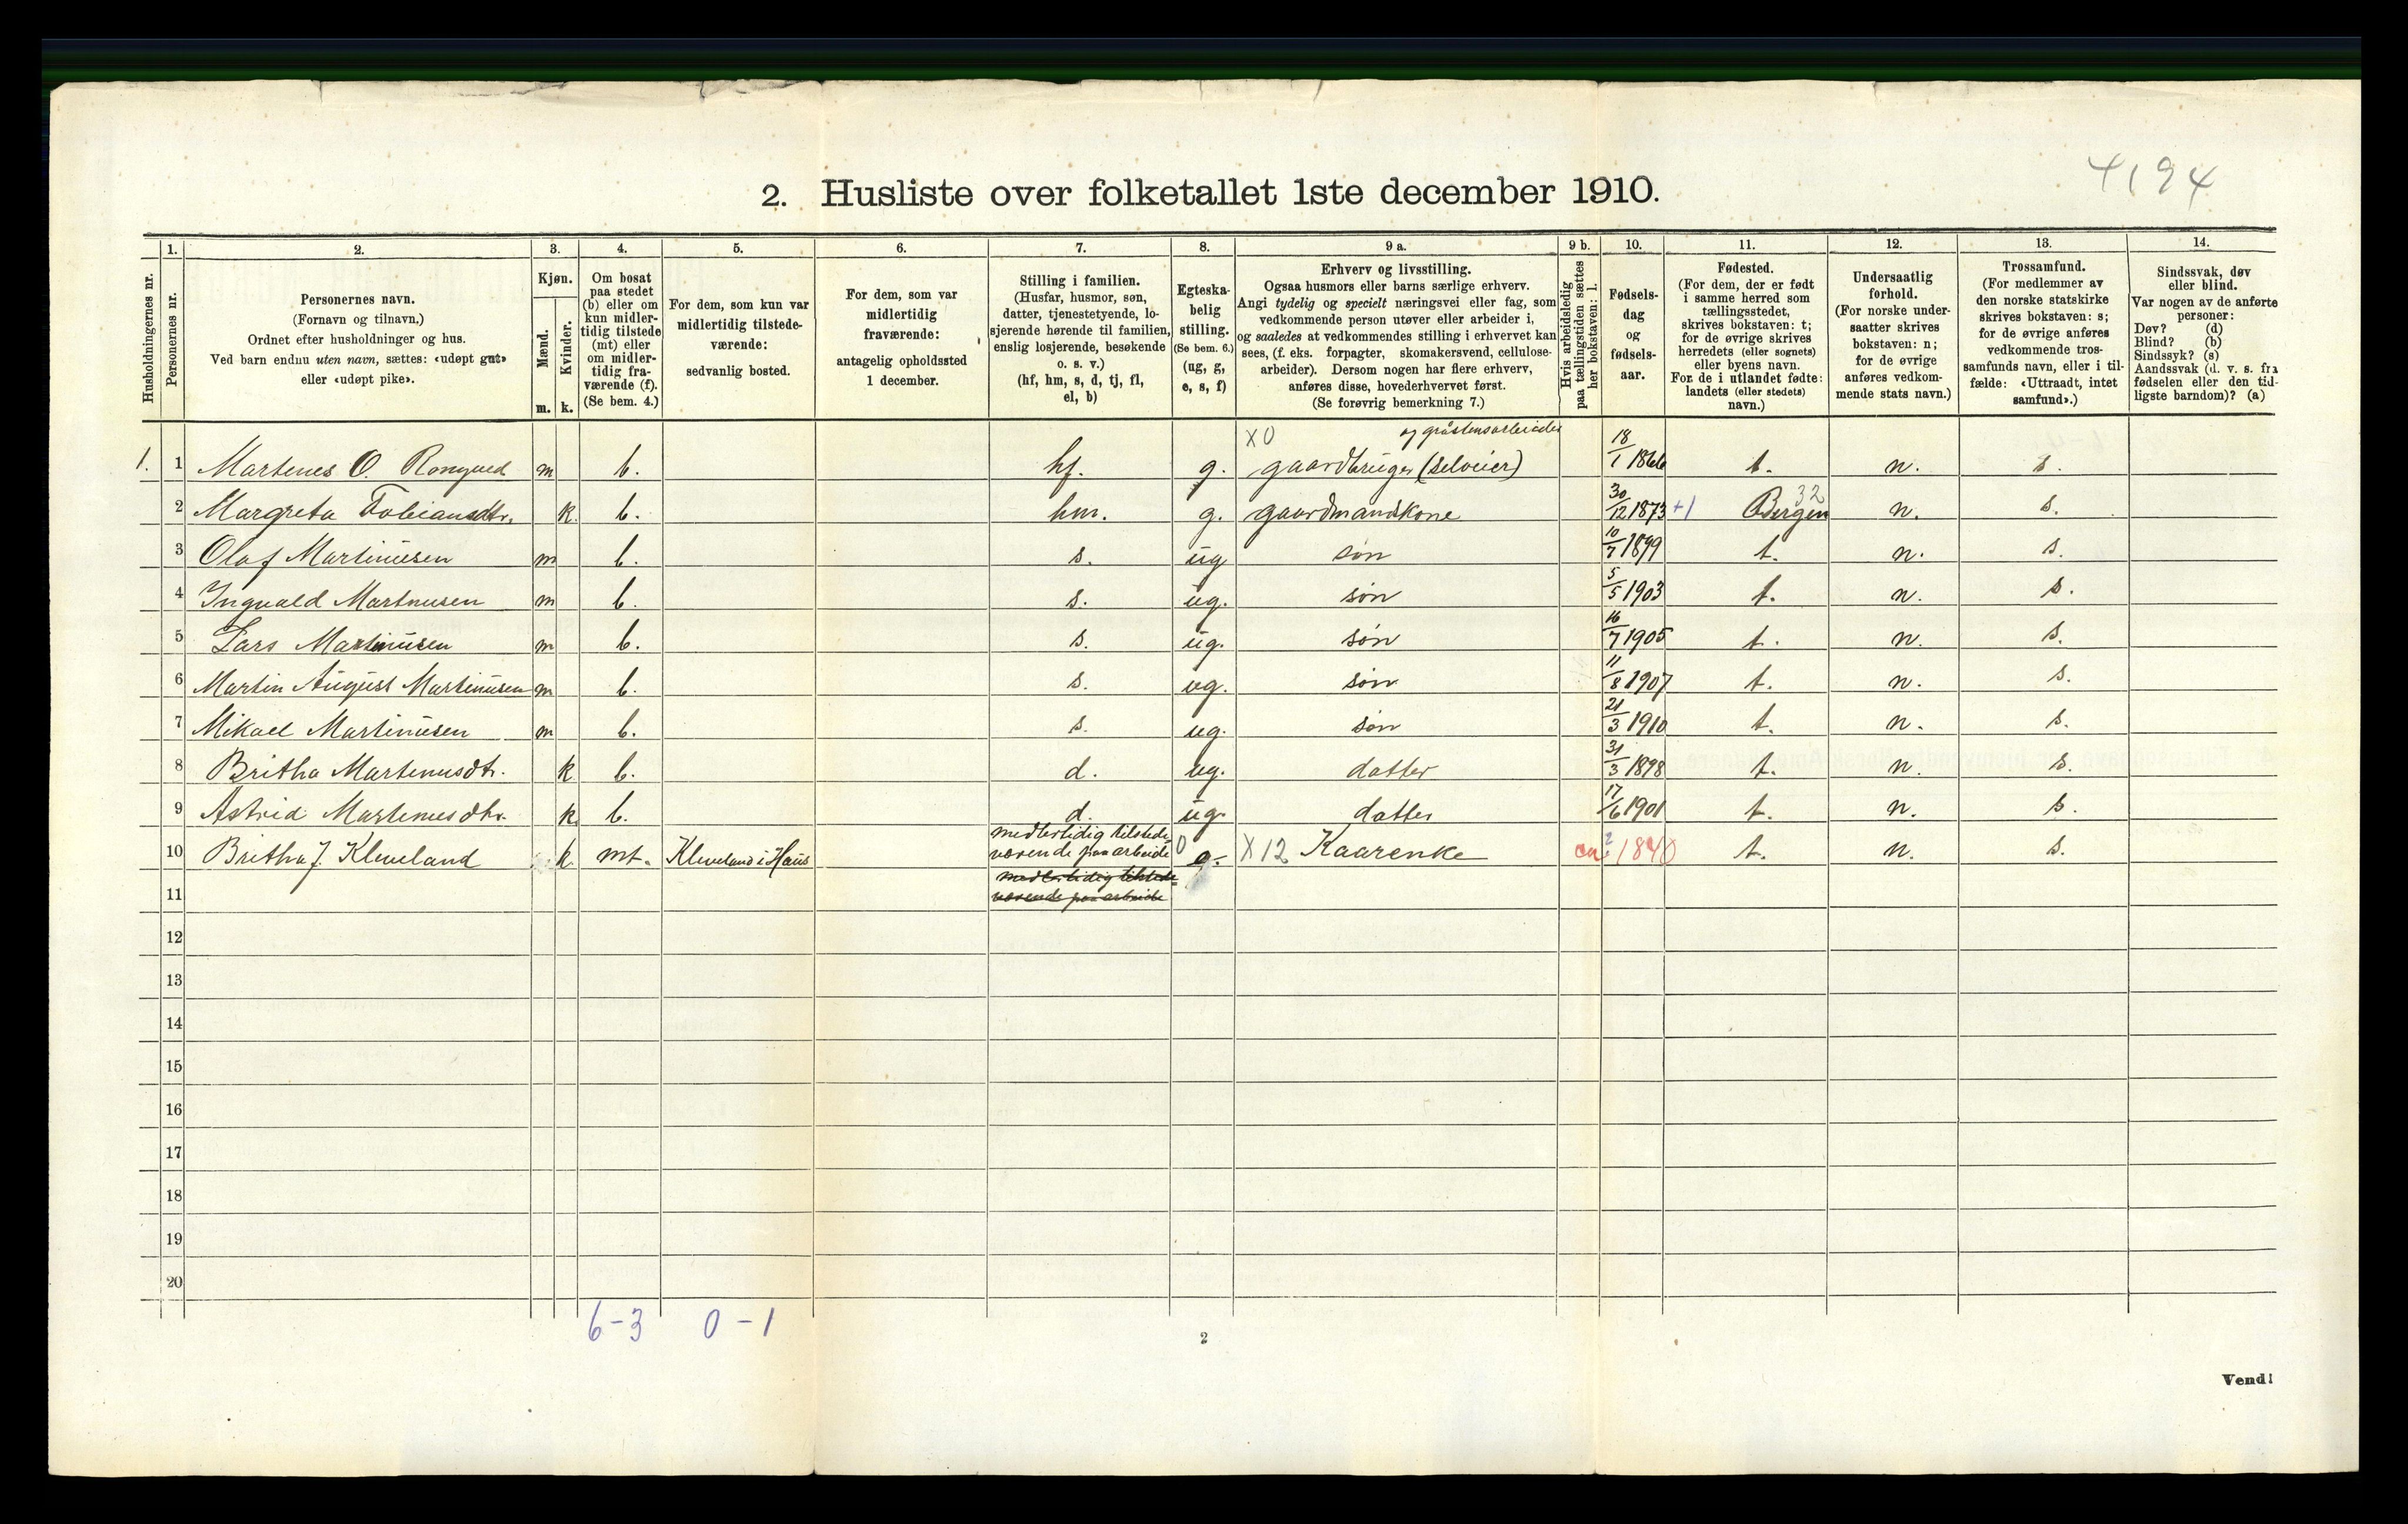 4194
2. Husliste over folketallet 1ste december 1910.
Husholdningernes nr.
1.
Personernes nr.
2.
Personernes navn.
(Fornavn og tilnavn.)
Ordnet efter husholdninger og hus.
Ved barn endnu uten navn, sættes: «udøpt gut»
eller «udøpt pike».
3.
Kjøn.
Mænd.
Kvinder.
m. k.
4.
Om bosat
paa stedet
(b) eller om
kun midler-
tidig tilstede
(mt) eller
om midler-
tidig fra-
værende (f).
(Se bem. 4.)
5.
For dem, som kun var
midlertidig tilstede-
værende:
sedvanlig bosted.
6.
For dem, som var
midlertidig
fraværende:
antagelig opholdssted
1 december.
7.
Stilling i familien.
(Husfar, husmor, søn,
datter, tjenestetyende, lo-
sjerende hørende til familien,
enslig losjerende, besøkende
o. s. v.)
(hf, hm, s, d, tj, fl,
el, b)
8.
Egteska-
belig
stilling.
(Se bem. 6.)
(ug, g,
e, s, f)
9 a.
Erhverv og livsstilling.
Ogsaa husmors eller barns særlige erhverv.
Angi tydelig og specielt næringsvei eller fag, som
vedkommende person utøver eller arbeider i,
og saaledes at vedkommendes stilling i erhvervet kan
sees, (f. eks. forpagter, skomakersvend, cellulose-
arbeider). Dersom nogen har flere erhverv,
anføres disse, hovederhvervet først.
(Se forøvrig bemerkning 7.)
9 b.
Hvis arbeidsledig
paa tællingstiden sættes
her bokstaven: l.
10.
Fødsels-
dag
og
fødsels-
aar.
11.
Fødested.
(For dem, der er født
i samme herred som
tællingsstedet,
skrives bokstaven: t;
for de øvrige skrives
herredets (eller sognets)
eller byens navn.
For de i utlandet fødte:
landets (eller stedets)
navn.)
12.
Undersaatlig
forhold.
(For norske under-
saatter skrives
bokstaven: n;
for de øvrige
anføres vedkom-
mende stats navn.)
13.
Trossamfund.
(For medlemmer av
den norske statskirke
skrives bokstaven: s;
for de øvrige anføres
vedkommende tros-
samfunds navn, eller i til-
fælde: «Uttraadt, intet
samfund».)
14.
Sindssvak, døv
eller blind.
Var nogen av de anførte
personer:
Døv? (d)
Blind? (b)
Sindssyk? (s)
Aandssvak (d. v. s. fra
fødselen eller den tid-
ligste barndom)? (a)
X0 og gråstensarbeider
1. 1 Martenes O. Rongved m b. hf. g. gaardbruger (selveier) 18/1 1866 t. n. s.
2 Margreta Tobiansdtr. k. b. hm. g. gaardmandskone 30/12 1873 +1 Bergen 32 n. s.
3 Olaf Martinusen m b. s. ug søn 10/7 1899 t. n. s.
4 Ingvald Martinusen m b. s. ug. søn 5/5 1903 t. n. s.
5 Lars Martinusen m b. s. ug. søn 16/7 1905 t. n. s.
6 Martin August Martinusen m b. s. ug. søn 11/8 1907 t. n. s.
7 Mikael Martinusen m b. s. ug. søn 21/3 1910 t. n. s.
8 Britha Martenusdtr. k b. d. ug. datter 31/3 1898 t. n. s.
9 Astrid Martenusdtr. k. b. d. ug. datter 17/6 1901 t. n. s.
10 Britha J. Kleveland k mt. Kleveland i Haus medlertidig tilstede-
værende paa arbeide 0 g. X 12 Kaarenke ca 1840 t. n. s.
11 medlertidig tilstede=
værende paa arbeide
12
13
14
15
16
17
18
19
20
6-3 0-1
2
Vend!